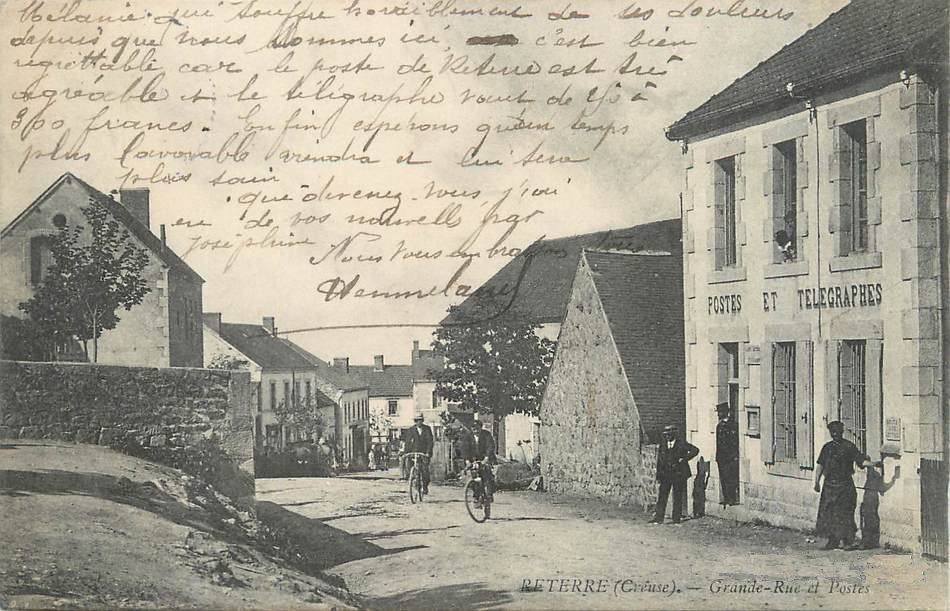 Mélanie qui souffre horriblement de ses douleurs
depuis que nous sommes ici, c'est bien
regrettable car le poste de Reterre est très
agréable et le télégraphe vaut de 250 à
300 francs. Enfin espérons qu'un temps
plus favorable viendra et lui sera
plus sain
que devenez-vous, j'ai
eu de vos nouvelle par
joséphine
Nous vous embrassons tous
POSTES ET TELEGRAPHES
RETERRE (Creuse). — Grande-Rue et Postes